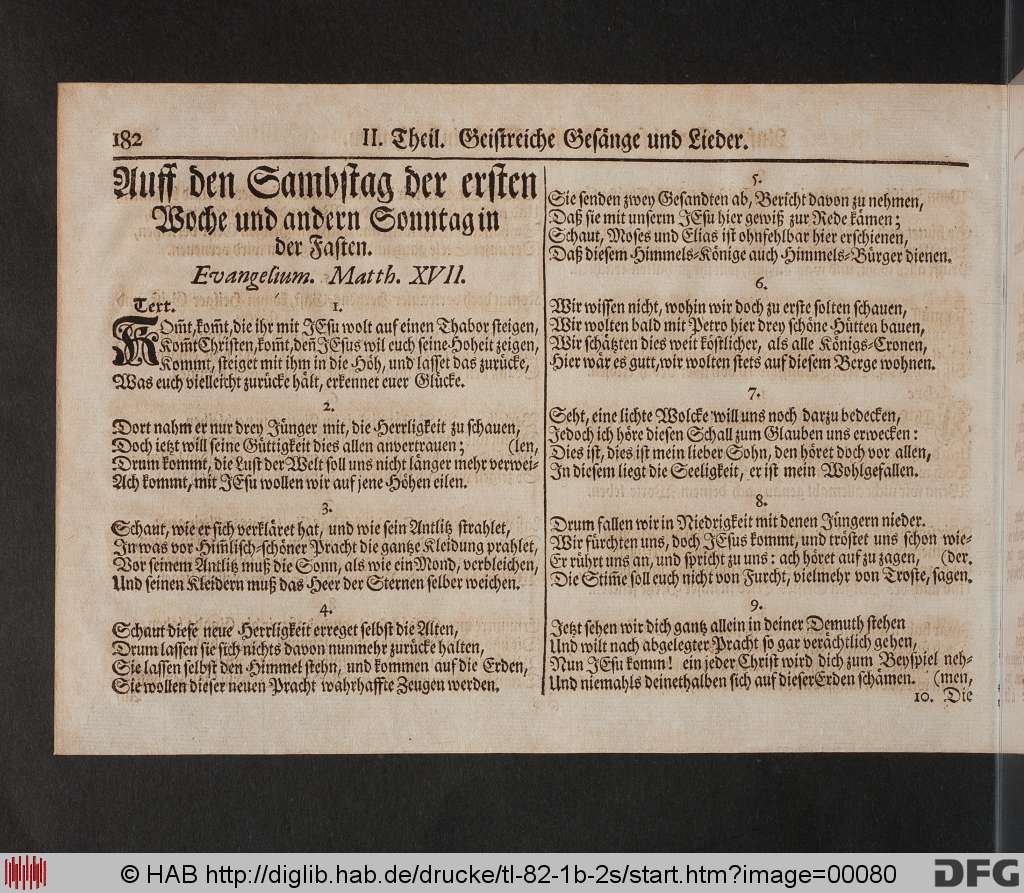 182
II. Theil. Geistreiche Gesänge und Lieder.
Auff den Sambstag der ersten
Woche und andern Sonntag in
der Fasten.
Evangelium. Matth. XVII.
Text. 1.
KOm̃t, kom̃t, die ihr mit JEsu wolt auf einen Thabor steigen,
Kom̃t Christen, kom̃t, deñ JEsus wil euch seine Hoheit zeigen,
Kommt, steiget mit ihm in die Höh, und lasset das zurücke,
Was euch vielleicht zurücke hält, erkennet euer Glücke.
2.
Dort nahm er nur drey Jünger mit, die Herrligkeit zu schauen,
Doch ietzt will seine Güttigkeit dies allen anvertrauen; (len,
Drum kommt, die Lust der Welt soll uns nicht länger mehr verwei-
Ach kommt, mit JEsu wollen wir auf jene Höhen eilen.
3.
Schaut, wie er sich verkläret hat, und wie sein Antlitz strahlet,
In was vor Him̃lisch-schöner Pracht die gantze Kleidung prahlet,
Vor seinem Antlitz muß die Sonn, als wie ein Mond, verbleichen,
Und seinen Kleidern muß das Heer der Sternen selber weichen.
4.
Schaut diese neue Herrligkeit erreget selbst die Alten,
Drum lassen sie sich nichts davon nunmehr zurücke halten,
Sie lassen selbst den Himmel stehn, und kommen auf die Erden,
Sie wollen dieser neuen Pracht wahrhaffte Zeugen werden.
5.
Sie senden zwey Gesandten ab, Bericht davon zu nehmen,
Daß sie mit unserm JEsu hier gewiß zur Rede kämen;
Schaut, Moses und Elias ist ohnfehlbar hier erschienen,
Daß diesem Himmels-Könige auch Himmels-Bürger dienen.
6.
Wir wissen nicht, wohin wir doch zu erste solten schauen,
Wir wolten bald mit Petro hier drey schöne Hütten bauen,
Wir schätzten dies weit köstlicher, als alle Königs-Cronen,
Hier wär es gutt, wir wolten stets auf diesem Berge wohnen.
7.
Seht, eine lichte Wolcke will uns noch darzu bedecken,
Jedoch ich höre diesen Schall zum Glauben uns erwecken:
Dies ist, dies ist mein lieber Sohn, den höret doch vor allen,
In diesem liegt die Seeligkeit, er ist mein Wohlgefallen.
8.
Drum fallen wir in Niedrigkeit mit denen Jüngern nieder.
Wir fürchten uns, doch JEsus kommt, und tröstet uns schon wie-
Er rührt uns an, und spricht zu uns: ach höret auf zu zagen, (der.
Die Stim̃e soll euch nicht von Furcht, vielmehr von Troste, sagen.
9.
Jetzt sehen wir dich gantz allein in deiner Demuth stehen
Und wilt nach abgelegter Pracht so gar verächtlich gehen,
Nun JEsu komm! ein jeder Christ wird dich zum Beyspiel neh-
Und niemahls deinethalben sich auf dieser Erden schämen. (men,
10. Die
© HAB http://diglib.hab.de/drucke/tl-82-1b-2s/start.htm?image=00080
DFG